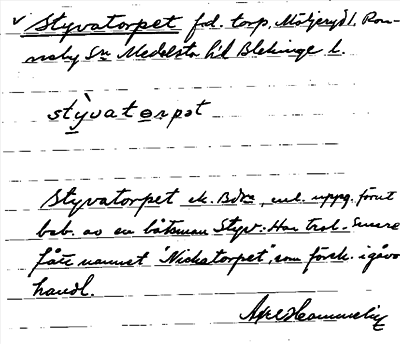 v Styvatorpet f.d. torp, Möljeryd 1, Ron-
neby Sn Medelsta hd Blekinge l.
stỳvatorpət
Styvatorpet ek. Bdn, enl. uppg. förut
beb. av en båtsman Styv. Har trol. senare
fått namnet "Nickatorpet", som förek. i gåvo
handl.